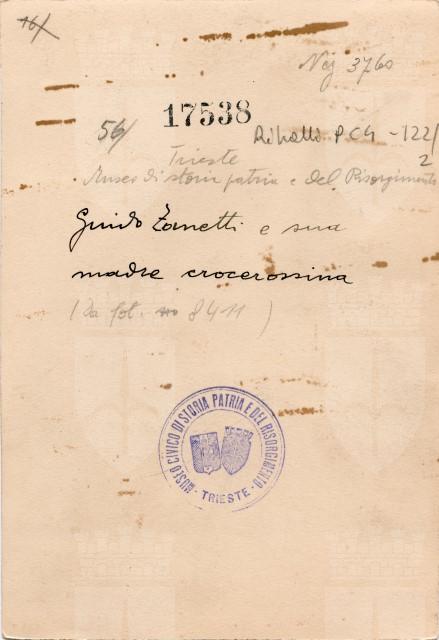 16/
Neg 3760
17538
56/
Ribalti PC4 - 122/2
Trieste
Museo di storia patria e del Risorgimento
Guido Zanetti e sua
madre crocerossina
(Da fot. no 8411)
MUSEO CIVICO DI STORIA PATRIA E DEL RISORGIMENTO
- TRIESTE -